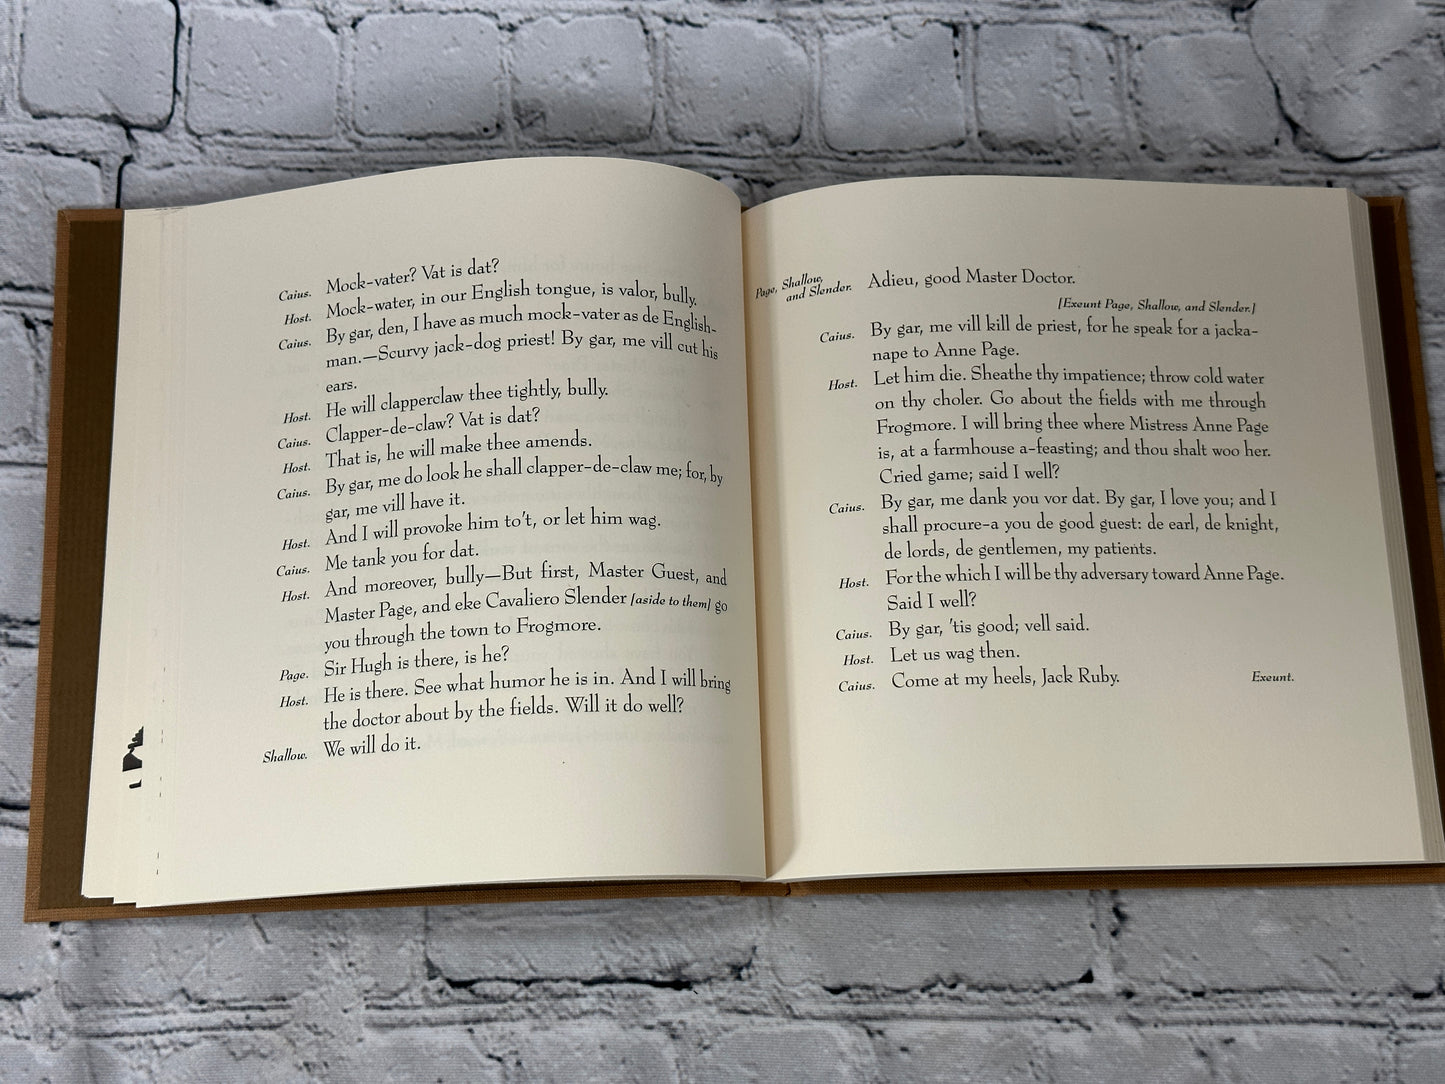 Caius. Mock-vater? Vat is dat?
Host. Mock-water, in our English tongue, is valor, bully.
Caius. By gar, den, I have as much mock-vater as de English-
man.—Scurvy jack-dog priest! By gar, me vill cut his
ears.
Host. He will clapperclaw thee tightly, bully.
Caius. Clapper-de-claw? Vat is dat?
Host. That is, he will make thee amends.
Caius. By gar, me do look he shall clapper-de-claw me; for, by
gar, me vill have it.
Host. And I will provoke him to't, or let him wag.
Caius. Me tank you for dat.
Host. And moreover, bully—But first, Master Guest, and
Master Page, and eke Cavaliero Slender [aside to them] go
you through the town to Frogmore.
Page. Sir Hugh is there, is he?
Host. He is there. See what humor he is in. And I will bring
the doctor about by the fields. Will it do well?
Shallow. We will do it.
Page, Shallow,
and Slender. Adieu, good Master Doctor.
[Exeunt Page, Shallow, and Slender.]
Caius. By gar, me vill kill de priest, for he speak for a jacka-
nape to Anne Page.
Host. Let him die. Sheathe thy impatience; throw cold water
on thy choler. Go about the fields with me through
Frogmore. I will bring thee where Mistress Anne Page
is, at a farmhouse a-feasting; and thou shalt woo her.
Cried game; said I well?
Caius. By gar, me dank you vor dat. By gar, I love you; and I
shall procure-a you de good guest: de earl, de knight,
de lords, de gentlemen, my patients.
Host. For the which I will be thy adversary toward Anne Page.
Said I well?
Caius. By gar, 'tis good; vell said.
Host. Let us wag then.
Caius. Come at my heels, Jack Ruby. Exeunt.